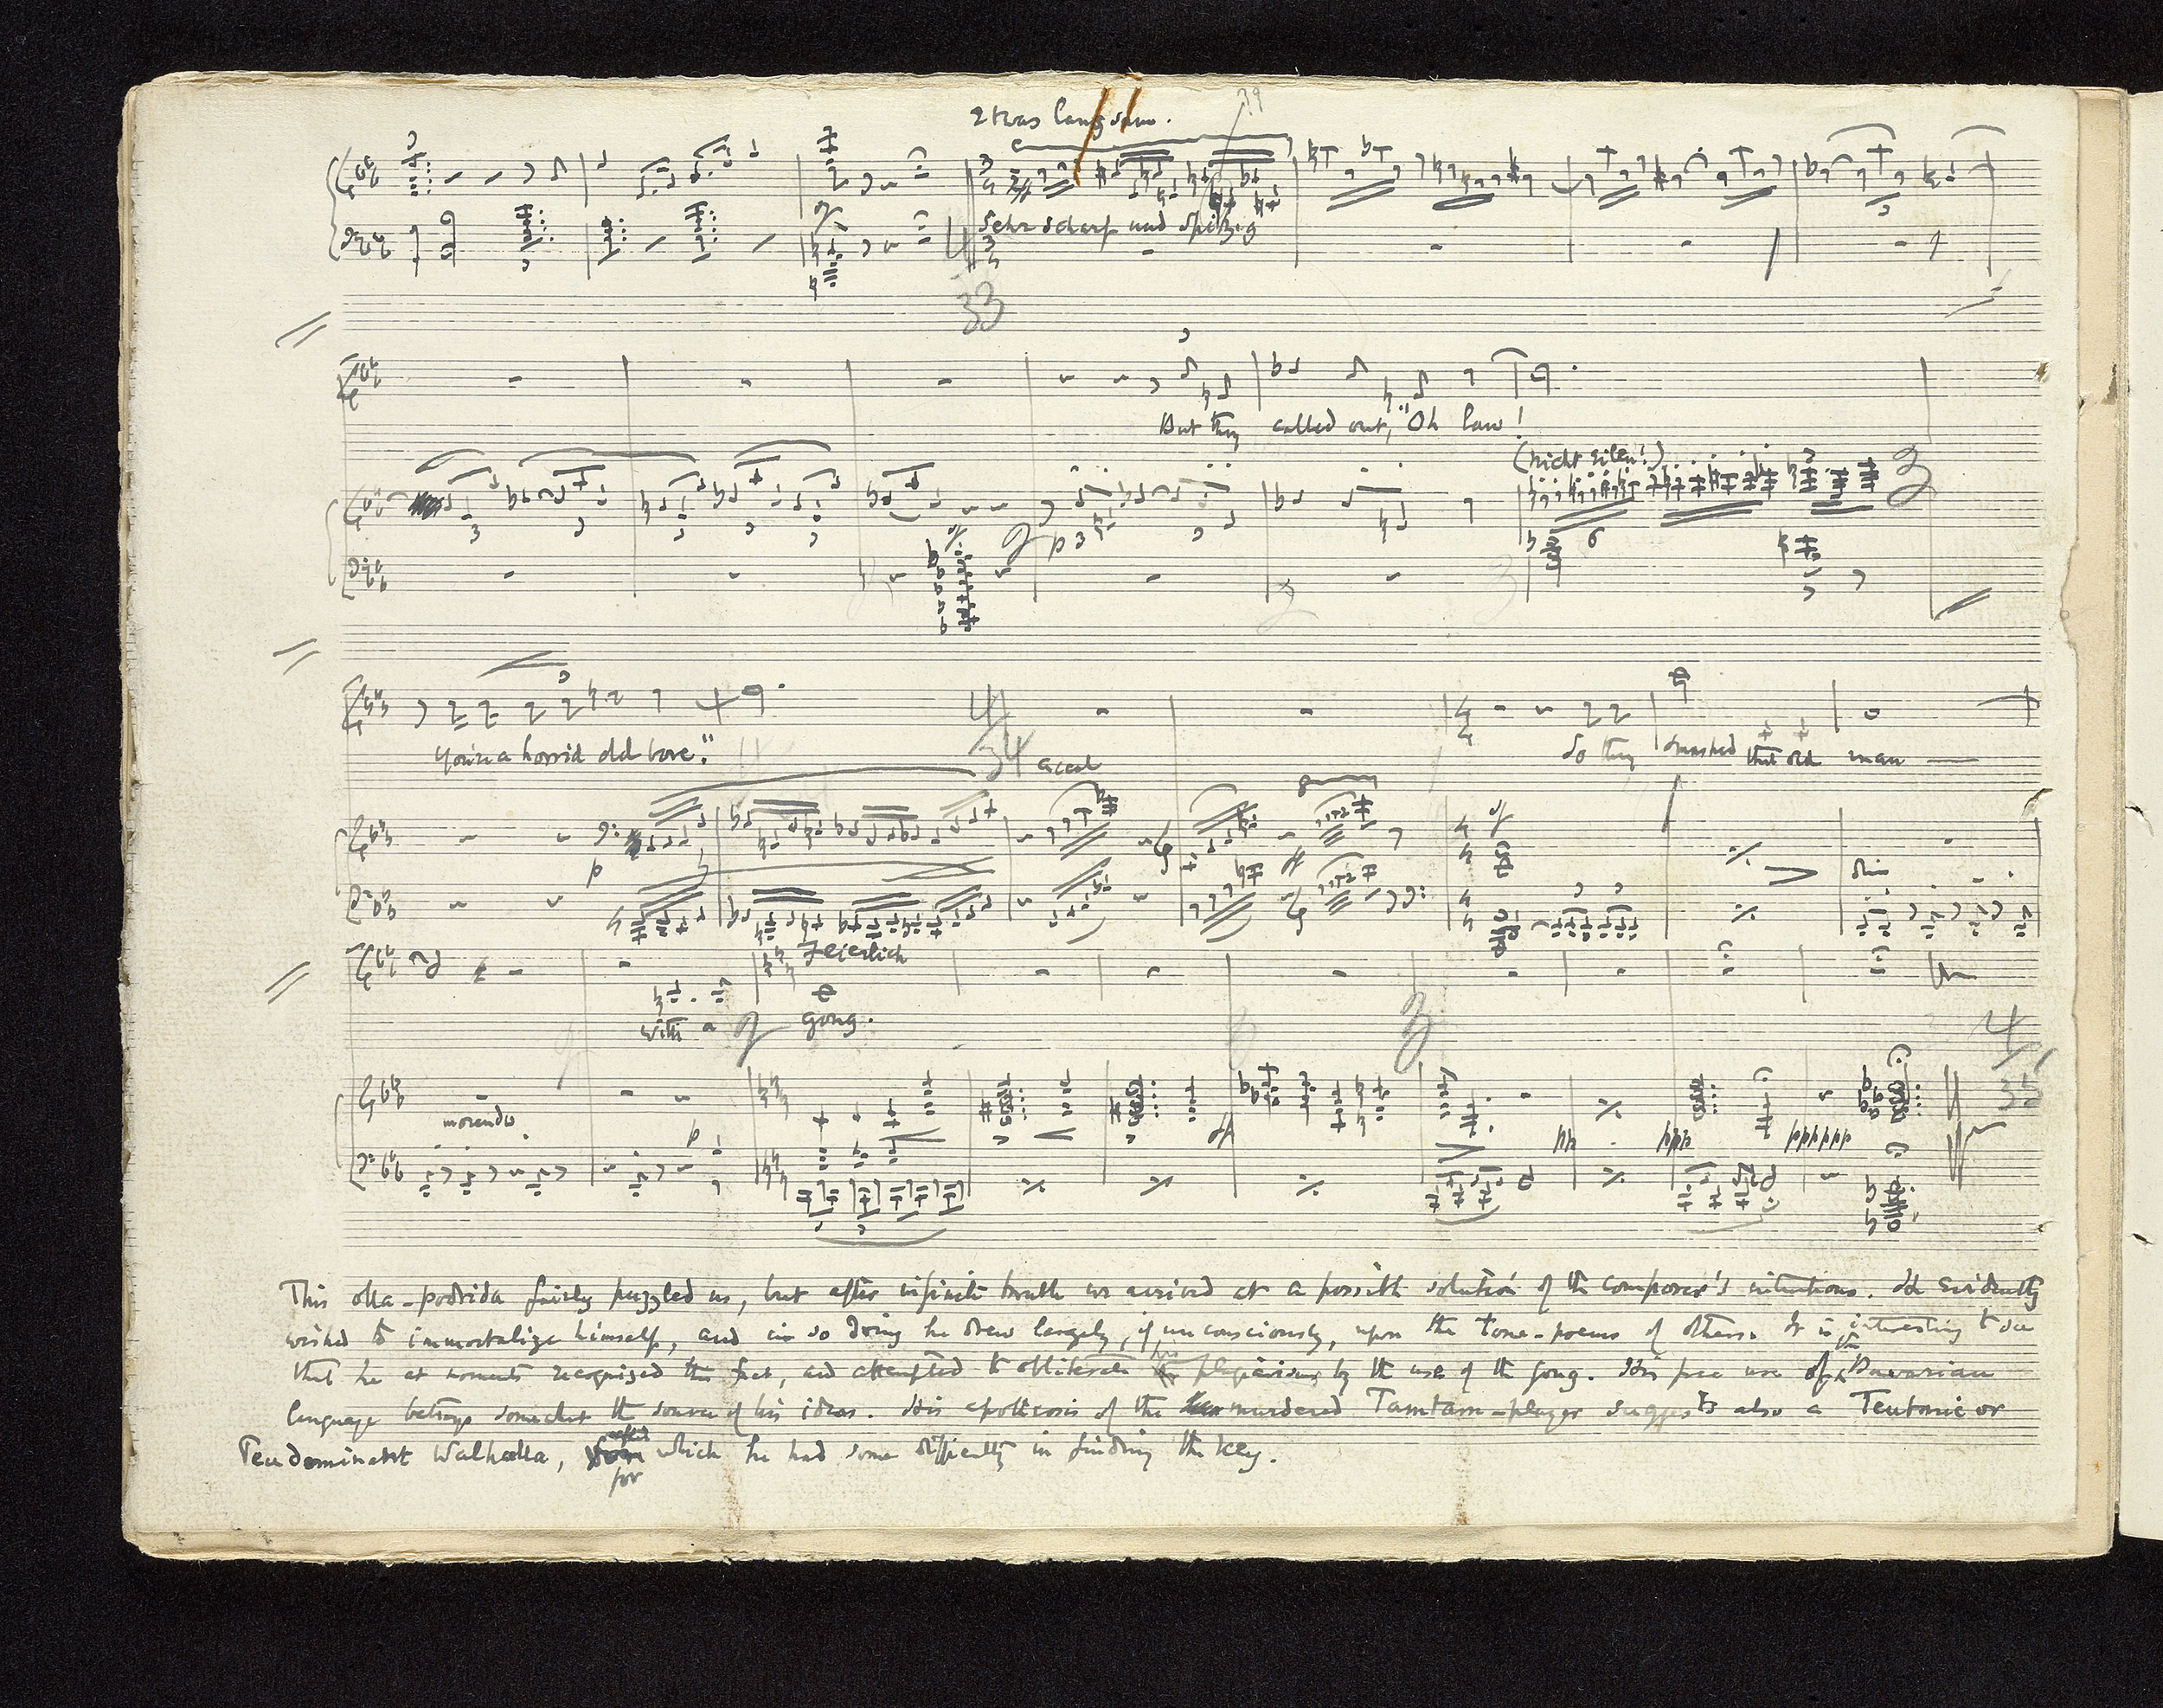 Etwas langsam.
39
Sehr scharf und spitzig
33
But they called out, "Oh law!
(nicht eilen!)
3
p
You're a horrid old bore."
So they smashed that old man
4
34 accel
p
ff
sf
dim
Feierlich
with a gong.
3
4
35
morendo
p
sf
pp
ppp
pppppp
This olla-podrida fairly puzzled us, but after infinite trouble we arrived at a possible solution of the composer's intentions. He evidently
wished to immortalize himself, and in so doing he drew largely, if unconsciously, upon the tone-poems of others. It is interesting to see
that he at moments recognised this fact, and attempted to obliterate his plagiarisms by the use of the gong. His free use of the Bavarian
language betrays somewhat the source of his ideas. His apotheosis of the murdered Tamtam-player suggests also a Teutonic or
Teudominant Walhalla, for which he had some difficulty in finding the key.